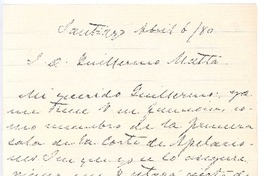 Santiago Abril 6/80
S. D. Guillermo Matta
Mi querido Guillermo, ya
me tiene U en funciones, co
mo miembro de la primera
sala de la Corte de Apelacio
nes